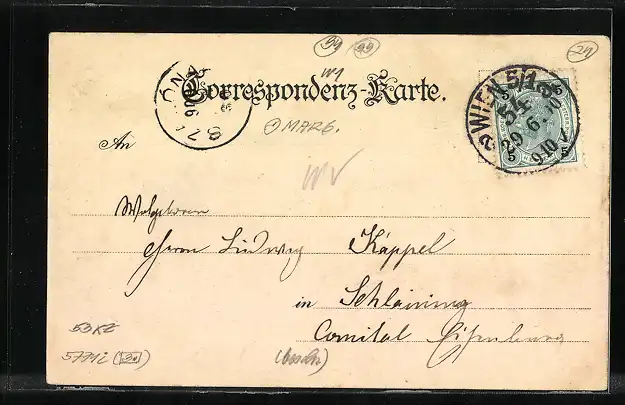 94
99
24
W1
Correspondenz-Karte.
WIEN 5/1
54
29 6 00
9.10 V
5 5
MARG.
An
WV
Wolgeboren
Herrn Ludwig Käppel
in Schlaining
Comitat Eisenburg
53KZ
5771i